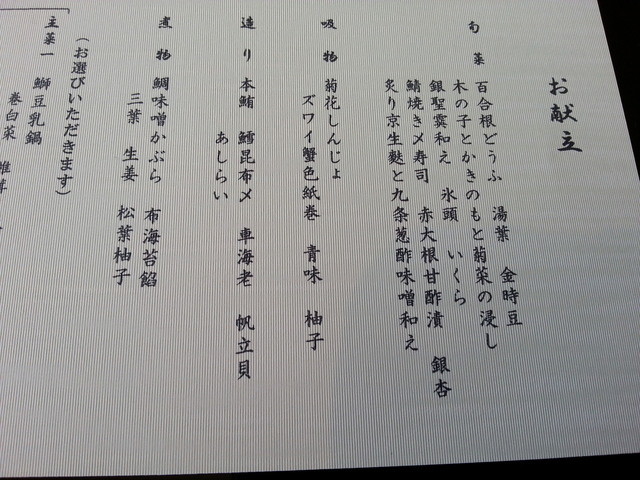 お献立
旬菜 百合根どうふ 湯葉 金時豆
木の子とかきのもと菊菜の浸し
銀聖霙和え 氷頭 いくら
鯖焼き〆寿司 赤大根甘酢漬 銀杏
炙り京生麩と九条葱酢味噌和え
吸物 菊花しんじょ
ズワイ蟹色紙巻 青味 柚子
造り 本鮪 鱈昆布〆 車海老 帆立貝
あしらい
煮物 鯛味噌かぶら 布海苔餡
三葉 生姜 松葉柚子
(お選びいただきます)
主菜一 鰤豆乳鍋
巻白菜